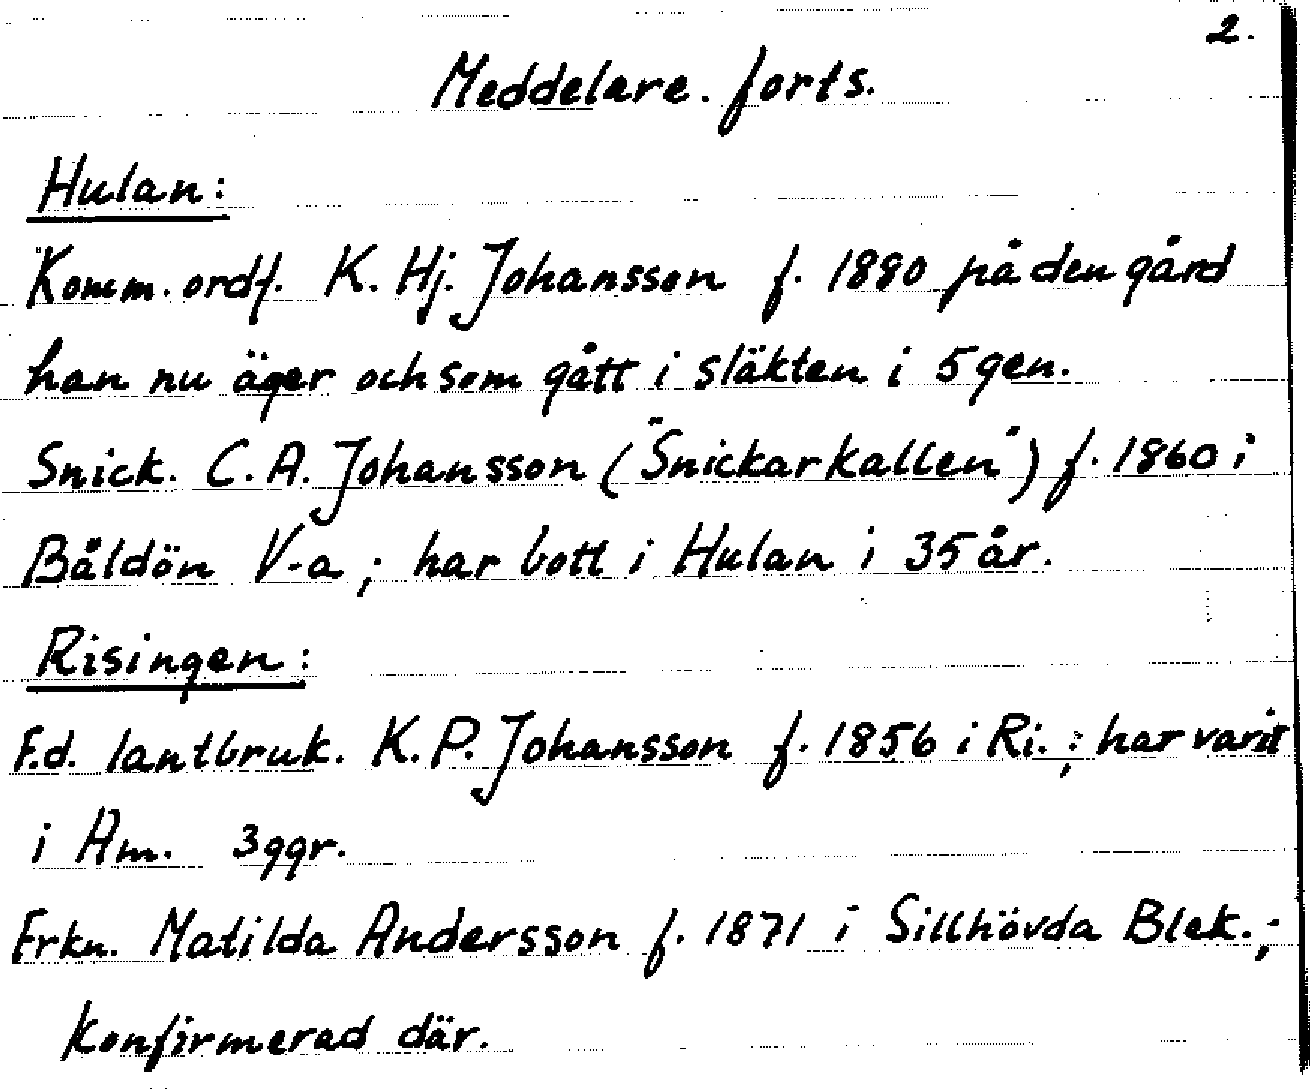 2.
Meddelare. forts.
Hulan:
Komm. ordf. K. Hj. Johansson f. 1880 på den gård
han nu äger och som gått i släkten i 5 gen.
Snick. C. A. Johansson ("Snickarkallen") f. 1860 i
Båldön V-a; har bott i Hulan i 35 år.
Risingen:
F.d. lantbruk. K. P. Johansson f. 1856 i Ri.; har varit
i Am. 3 ggr.
Frkn. Matilda Andersson f. 1871 i Sillhövda Blek.;
konfirmerad där.